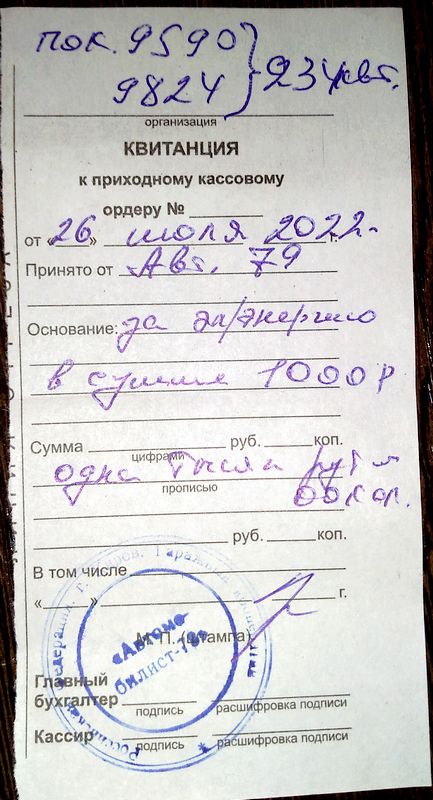 пок. 9590
9824 } 234квт.
организация
КВИТАНЦИЯ
к приходному кассовому
ордеру №
от «26» июля 2022 г.
Принято от Авт. 79
Основание: за эл/энергию
в сумме 1000 р.
Сумма руб. коп.
цифрами
одна тысяча руб
прописью
00 коп.
руб. коп.
В том числе
« » г.
М. П. (штампа)
«Автомобилист-
Российская Федерация
Главный
бухгалтер
подпись расшифровка подписи
Кассир
подпись расшифровка подписи